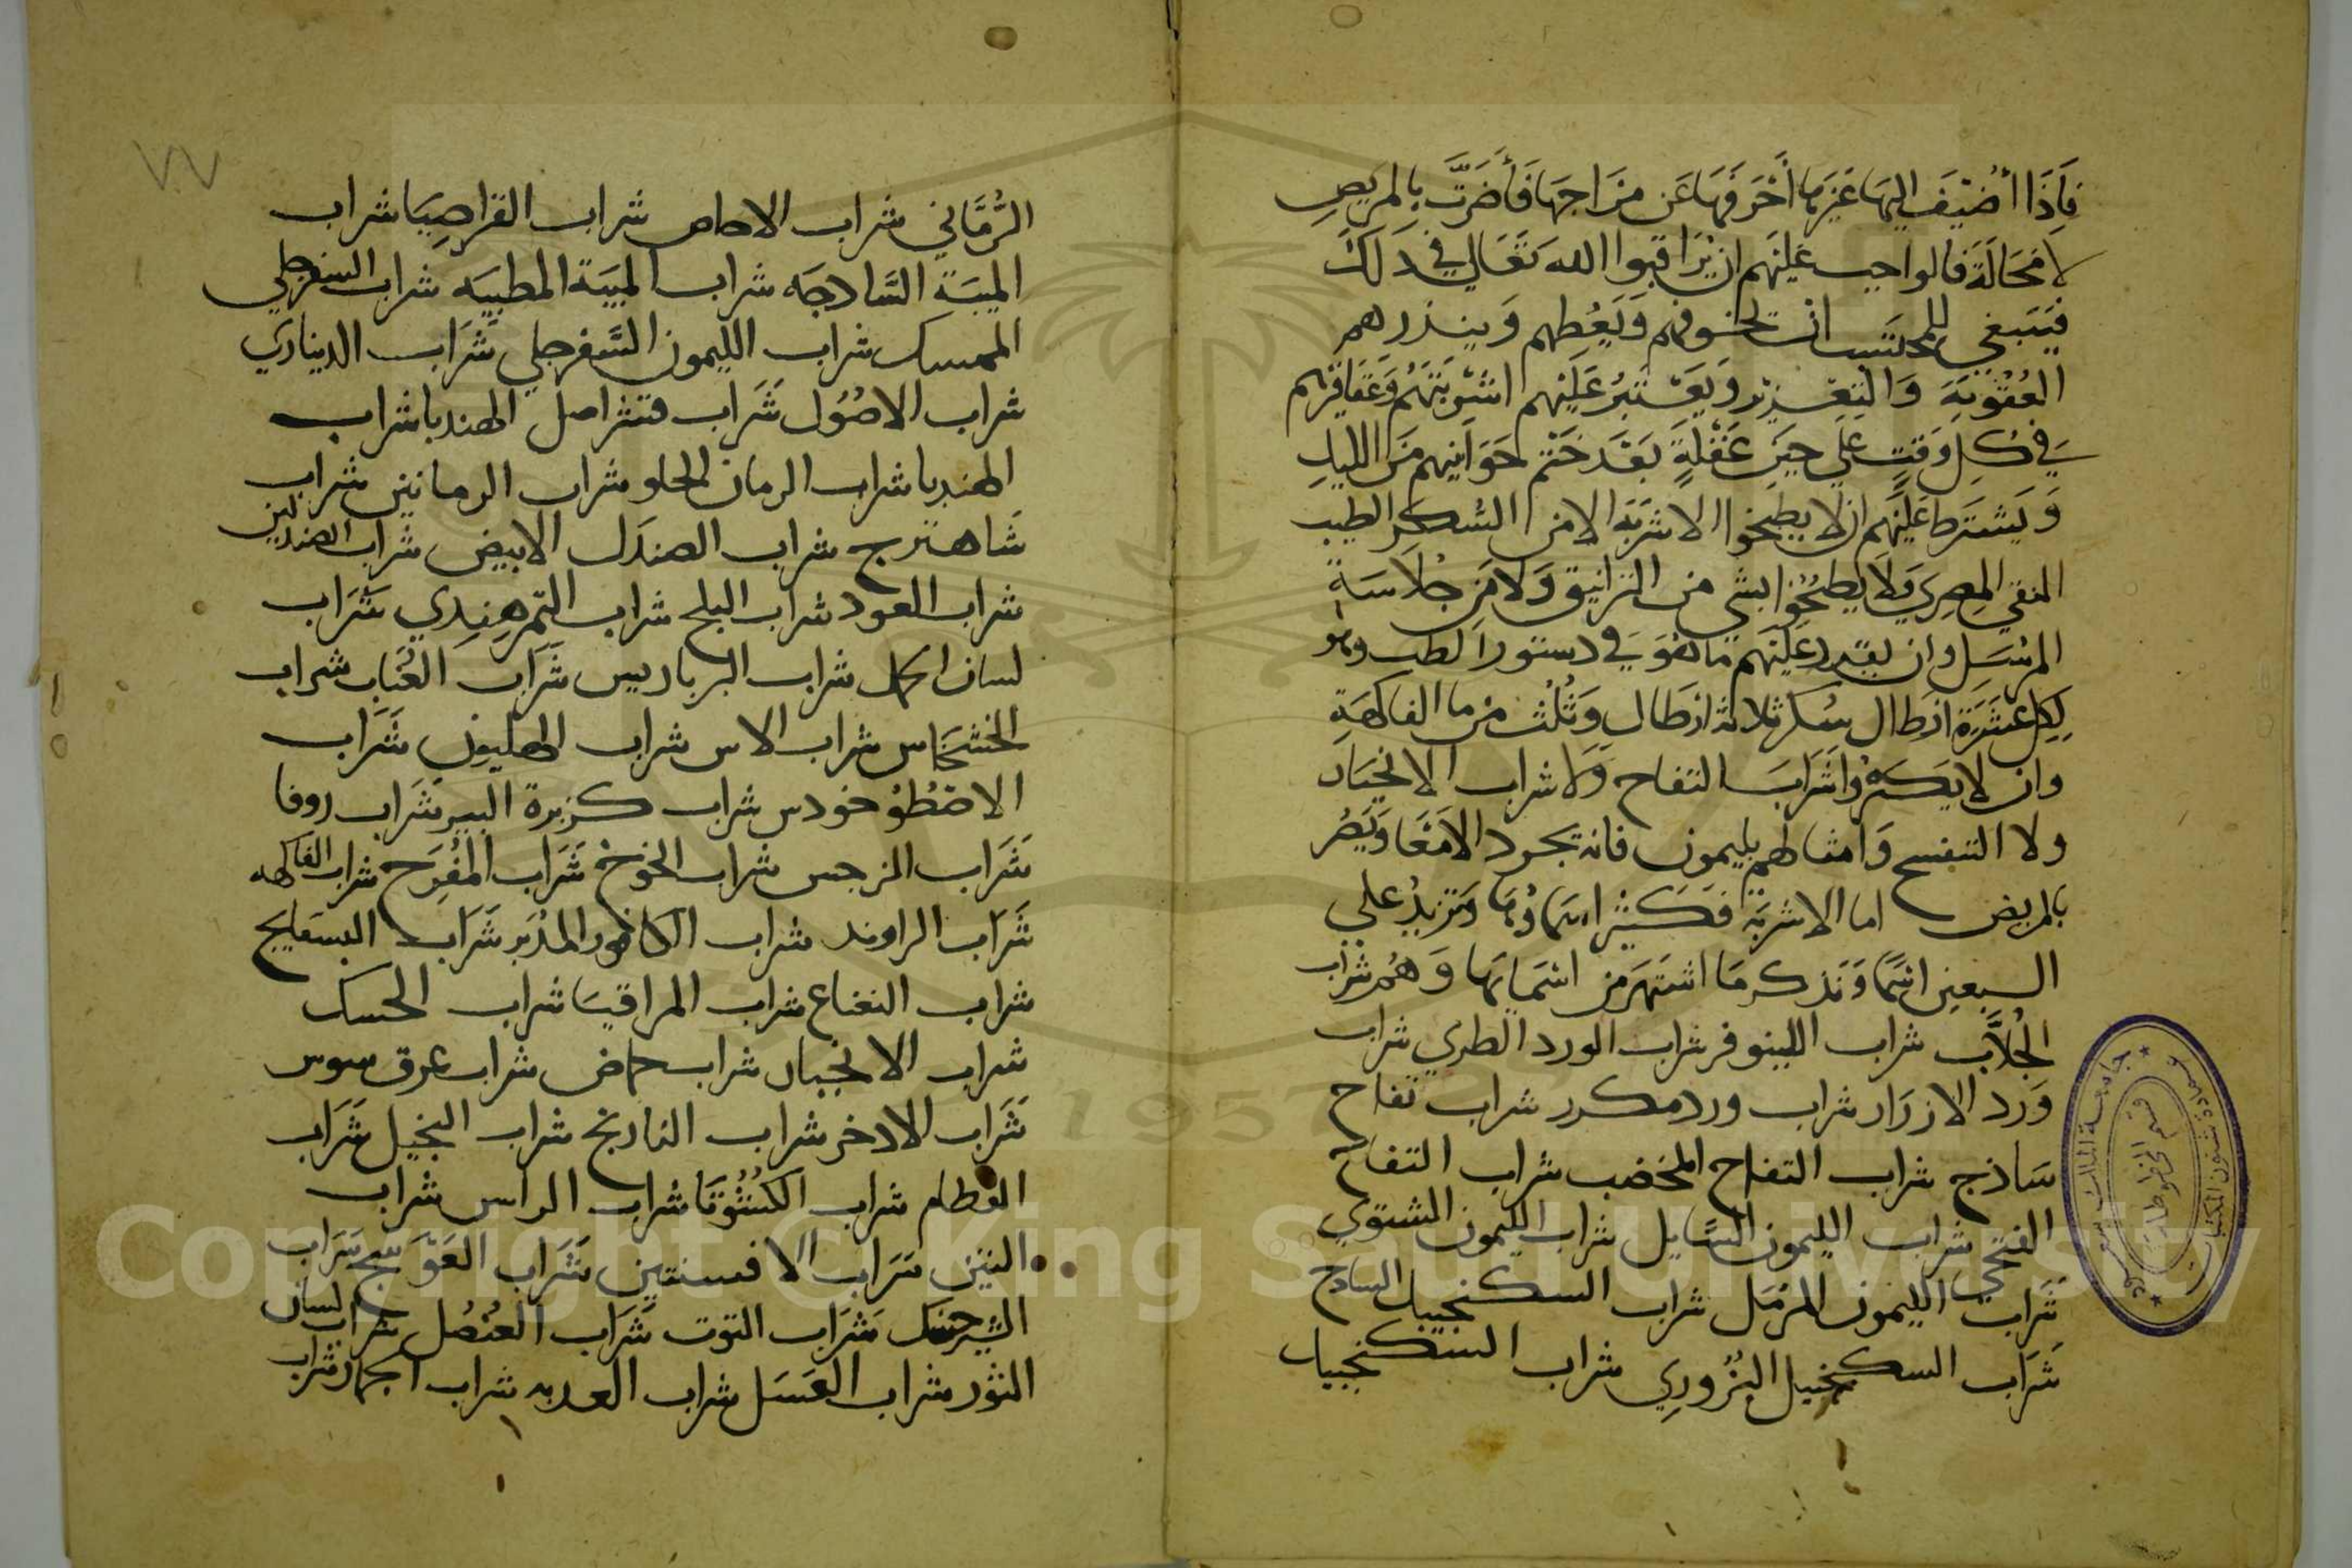 فَإِذَا أُضِيْفَ اليهَا غَيْرهَا أحْرَفَهَا عَن مزَاجهَا فَأضَرَّتْ بِالمريضِ
لاَ مَحَالَة فالواجب عَلَيْهم ان يُرَاقبوا الله تَعَالي في ذَلكَ
فيَنبَغي للمحتَسب ان يخوفهم وَيَعُظهم وَينذرهم
العُقوبَة وَالتعْزير وَيَعْتَبرُ عَلَيْهم اشْربَتَهُم وَعَقَاقيرهم
في كُل وَقتٍ عَلي حيَن غَفْلَةٍ بَعْدَ خَتْم حَوَانيتهم منَ الليلِ
وَيَشتَرط عَلَيْهم ان لا يطبخوا الاشربَة الا من السُكر الطيب
النقي المصري وَلاَ يَطبخُوا بشي من الزانيق وَلا من جُلاَسَةِ
المرْسَل وان يقرر عَلَيْهم مَا هُوَ في دستور الطب وهو
لِكل عَشَرَة ارَطال سُكر ثلاثة ارطال وَثُلُث من ما الفَاكهَةِ
وان لا يَكسرُوا شَرَابَ التفاح وَلا شراب الانجبَار
ولا البنفسج وَامثالهم بليمون فانه يجرد الامْعَا وَيَضُر
بالمريض اما الاشربَة فكَثيْر اسمَاوُهَا وَتزيدُ علي
السبعين اسْمًا وَنَذكر مَا اشتَهَر من اسْمَايهَا وَهُم شراب
الجُلاَّب شراب اللينوفر شراب الورد الطري شراب
وَرد الازرَار شراب ورد مكرر شراب تفاح
سَاذج شراب التفاح المخضب شراب التفاح
الفتحي شراب الليمون السَّايل شراب الليمون الشتوي
شَرَاب الليمون المرْمَل شراب السكنجبيل السادج
شَرَاب السكنجبيل البُزُوري شراب السكنجبيل
٧٧
الرُّمَّاني شراب الاجاص شراب القراصيَا شراب
الميبَة السَّادجَه شراب الميبَة المطيبَه شراب السفرجلي
الممسك شراب الليمون السَّفرجلي شَرَاب الديناري
شراب الاصُوُل شَرَاب قشر اصل الهندبا شراب
الهندبا شراب الرمان الحلو شراب الرمانين شراب
شَاهترج شراب الصندَل الابيض شراب الصندلين
شراب العود شراب البلح شراب التمرهِنِدي شَرَاب
لسان الحمل شراب البرباريس شَرَاب العُنَّاب شراب
الخشخَاش شراب الاس شراب الهليون شَرَاب
الاسْطُوُخودس شراب كزبرة البير شَرَاب زوفا
شَرَاب النرجس شراب الخوخ شَرَاب المُفرح شراب الفاكهه
شَرَاب الراوند شراب الكافور المدَبر شَرَاب البسفايج
شراب النعناع شراب المراقيَا شراب الحسك
شراب الانجبار شراب حماض شراب عرق سوس
شَرَاب الادخر شراب النارنج شراب النجيل شَرَاب
العظام شراب الكُشُوُتَا شراب الراس شراب
التين شَرَاب الافسنتين شَرَاب العَوْسج شراب
الشيرخشك شَرَاب التوت شَرَاب العُنصُل شراب لسان
الثور شراب العَسَل شراب العد به شراب الجمار شراب
جامعة الملك سعود
قسم المخطوطات
عمادة شئون المكتبات
1957
Copyright © King Saud University